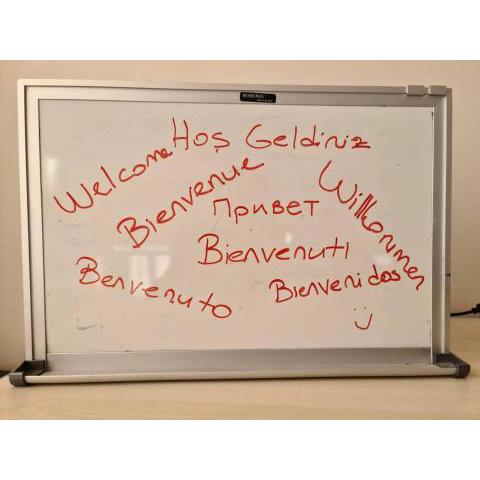 Hoş Geldiniz
Welcome
Bienvenue
Willkommen
Привет
Bienvenuti
Benvenuto
Bienvenidos